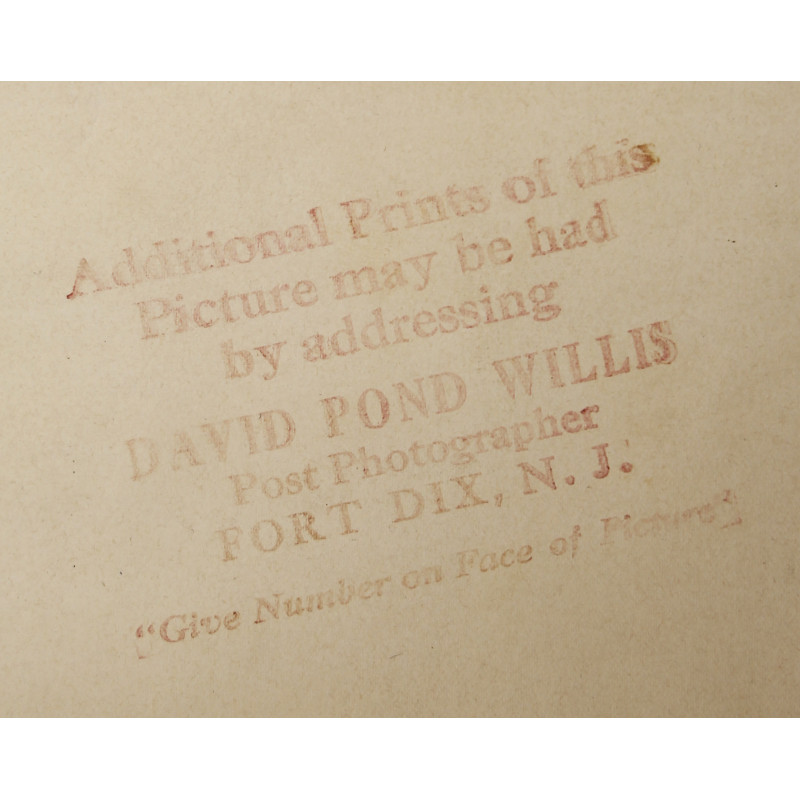 Additional Prints of this
Picture may be had
by addressing
DAVID POND WILLIS
Post Photographer
FORT DIX, N. J.
"Give Number on Face of Picture"